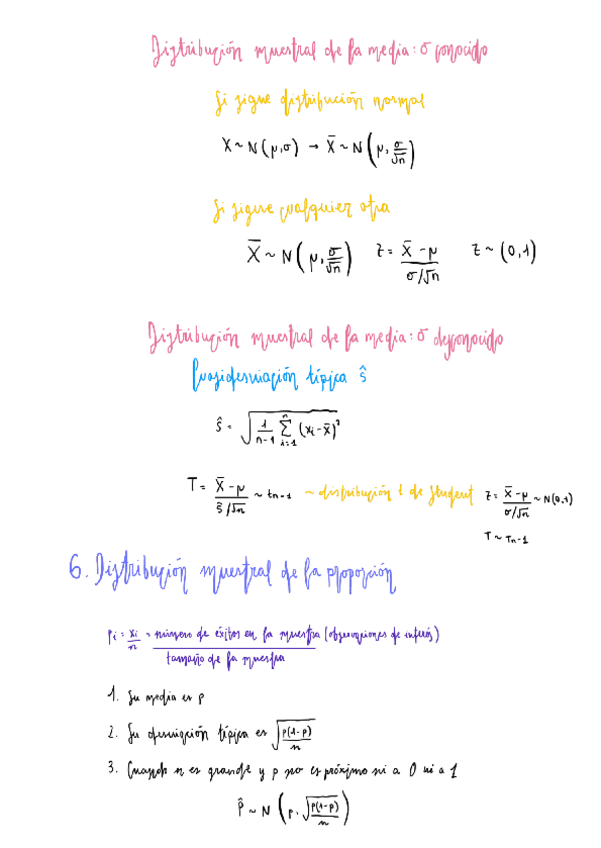 Distribución muestral de la media: σ conocido
Si sigue distribución normal
X ~ N(μ,σ) → X̄ ~ N(μ, σ/√n)
Si sigue cualquier otra
X̄ ~ N(μ, σ/√n) Z = (X̄ - μ)/(σ/√n) Z ~ (0,1)
Distribución muestral de la media: σ desconocido
Cuasidesviación típica ŝ
ŝ = √(1/(n-1) Σ_{i=1}^{n} (xi - x̄)²)
T = (X̄ - μ)/(ŝ/√n) ~ tn-1 ~ distribución t de Student Z = (X̄ - μ)/(σ/√n) ~ N(0,1)
T ~ Tn-1
6. Distribución muestral de la proporción
pi = xi/n = número de éxitos en la muestra (observaciones de interés)
tamaño de la muestra
1. Su media es p
2. Su desviación típica es √(p(1-p)/n)
3. Cuando n es grande y p no es próximo ni a 0 ni a 1
p̂ ~ N(p, √(p(1-p)/n))